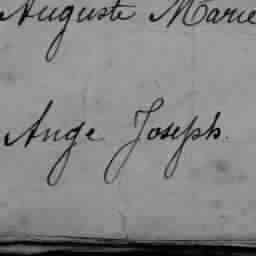 Auguste Marie
Ange Joseph.